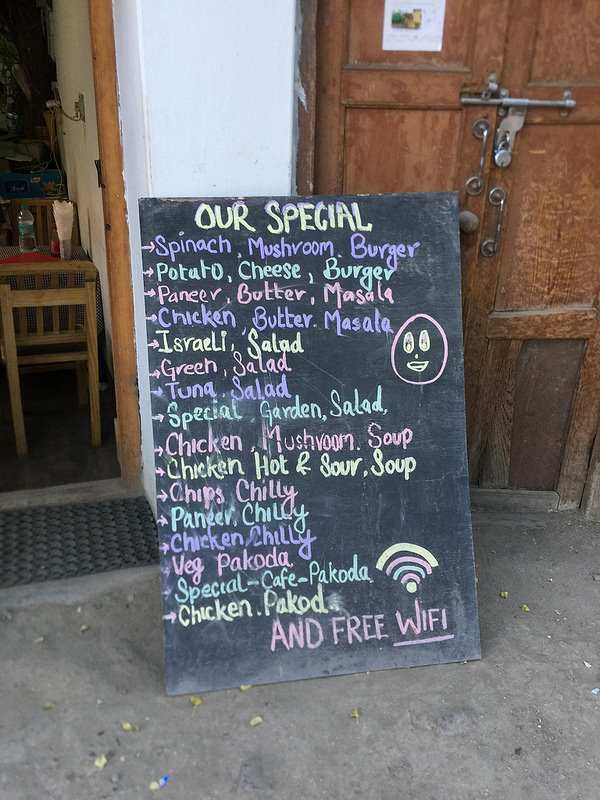 OUR SPECIAL
→Spinach, Mushroom. Burger
→Potato, Cheese, Burger
→Paneer, Butter, Masala
→Chicken, Butter. Masala
→Israeli, Salad
→Green, Salad
→Tuna, Salad
→Special. Garden, Salad,
→Chicken, Mushroom. Soup
→Chicken Hot & Sour, Soup
→Chips Chilly
→Paneer, Chilly
→Chicken, Chilly
→Veg Pakoda
→Special-Cafe-Pakoda
→Chicken. Pakod
AND FREE WIFI